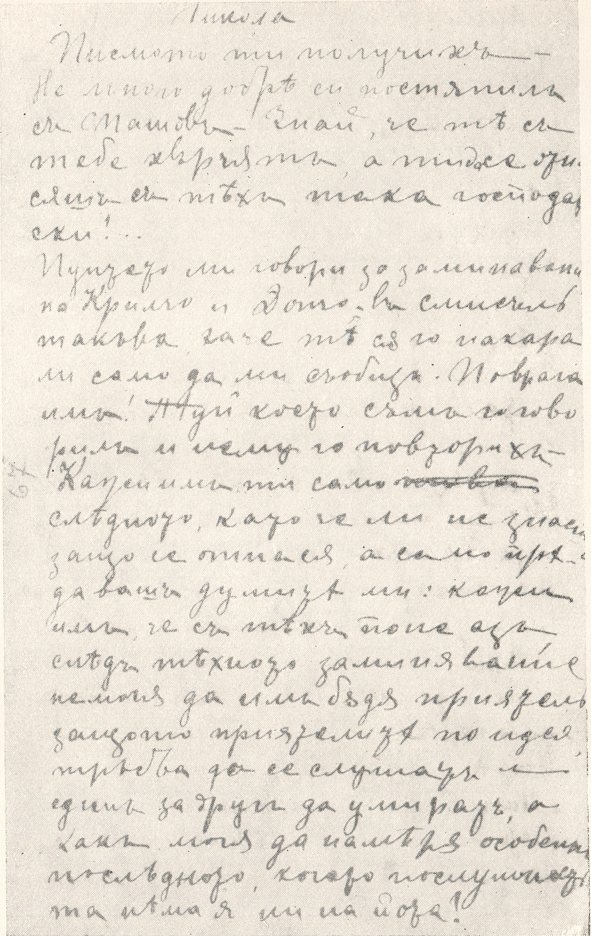 Никола
Писмото ти получихъ —
Не много добрѣ си постяпилъ
съ Машовъ — Знай, че тѣ съ
тебе хвърчятъ, а ти же
сящъ съ тѣхъ така господар
ски!..
ми говори за заминаван
на Крилчо и Дончо въ смисъль
такъва, каче тѣ ся го накара
ли само да ми съобщи. По врага
имъ! Туй което съмъ гово
рилъ и нему го повторихъ —
67
Кажи имъ ти само
слѣдното, като че ли не знаеш
защо се отнася, а само прѣ-
давашъ думитѣ ми: кажи
имъ, че съ тѣхъ поне азъ
слѣдъ тѣхното заминяваніе
немогя да имъ бѫдя приятель
защото приятелитѣ по идея
трѣбва да се слушатъ и
единъ за другъ да умиратъ, а
какъ могя да намѣря особенн
послѣдното, когато послушаость
та нѣма я ни на йота!